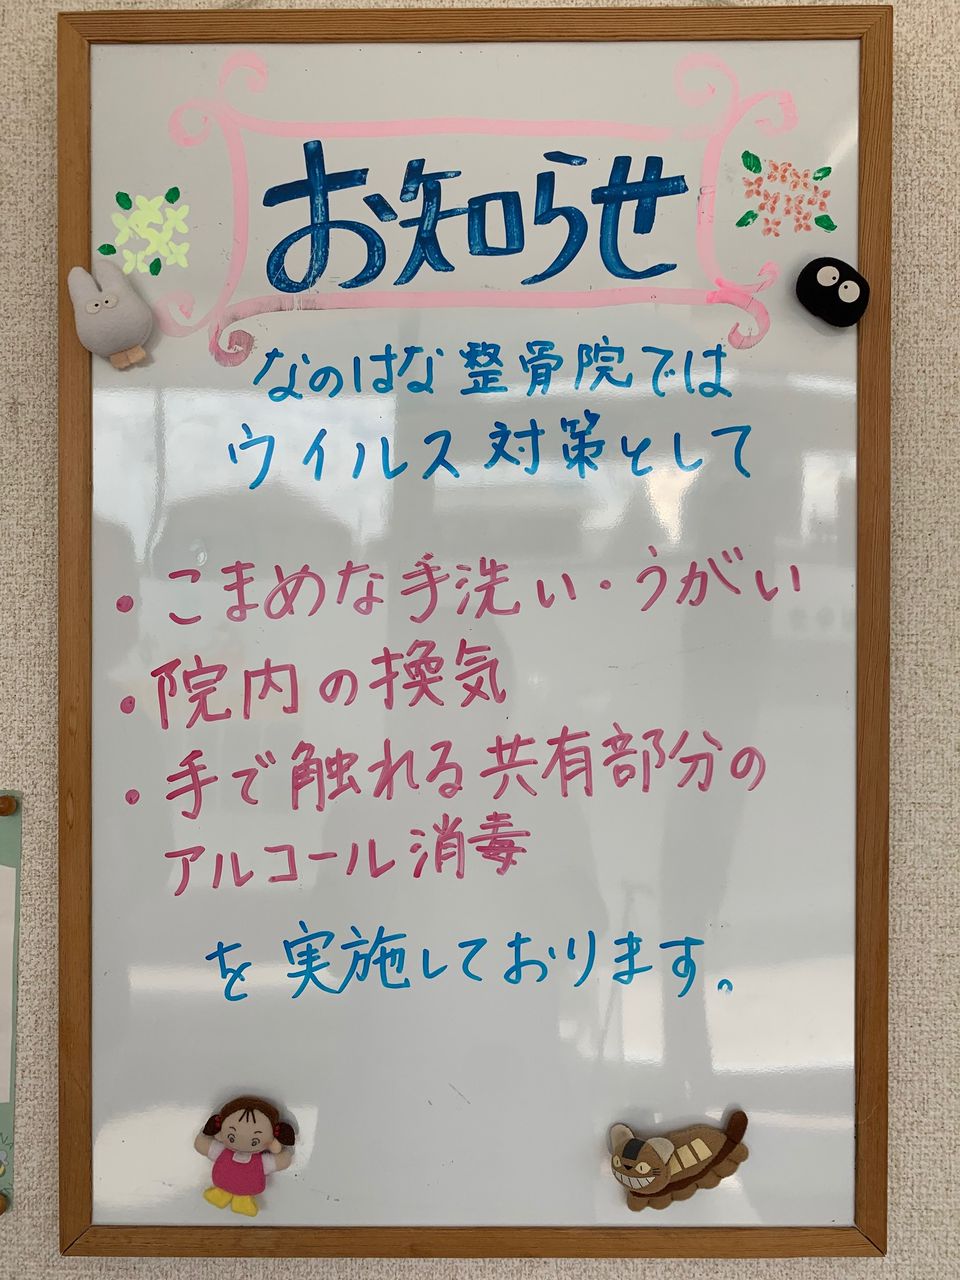 お知らせ
なのはな整骨院では
ウイルス対策として
・こまめな手洗い・うがい
・院内の換気
・手で触れる共有部分の
アルコール消毒
を実施しております。